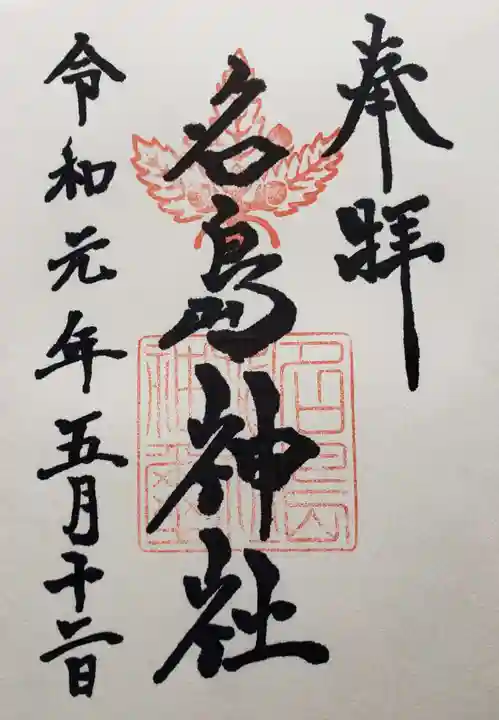 奉拝
名島神社
令和元年五月十二日